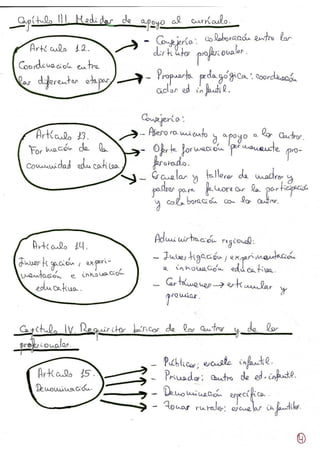 Capítulo III. Medidas de apoyo al currículo.
Artículo 12.
Coordinación entre
las diferentes etapas.
- Consejería: colaboración entre los
distintos profesionales.
- Propuesta pedagógica: coordinación
ciclos ed infantil.
Consejería:
Artículo 13.
Formación de la
comunidad educativa
- Asesoramiento y apoyo a los Centros.
- Oferta formación permanente pro-
fesorado.
- Escuelas y talleres de madres y
padres para favorecer la participación
y colaboración con los centros.
Artículo 14.
Investigación, experi-
mentación e innovación
educativa.
Administración regional:
- Investigación, experimentación
e innovación educativa.
- Certámenes → estimular y
premiar.
Capítulo IV. Requisitos básicos de los centros y de los
profesionales.
Artículo 15.
Denominación.
- Públicos; escuela infantil.
- Privados: centro de ed. infantil.
- Denominación específica.
- Zonas rurales: escuelas infantiles.
4